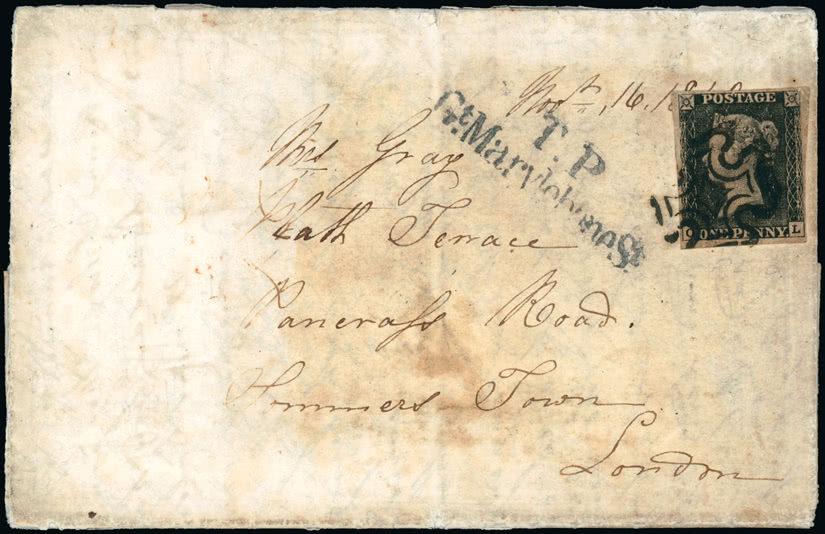 Novr. 16. 18
T.P
Gt. Marylebone St
POSTAGE
ONE PENNY
L
Mrs Gray
Heath Terrace
Pancrass Road.
Sommers Town
London